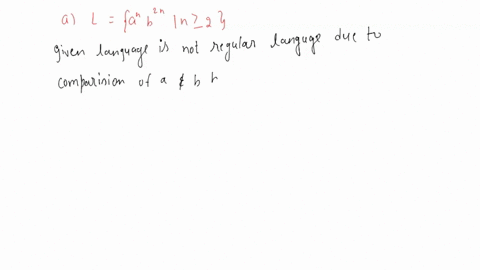 a) L = {aⁿ b²ⁿ | n ≥ 2}
given language is not regular language due to
comparision of a & b b